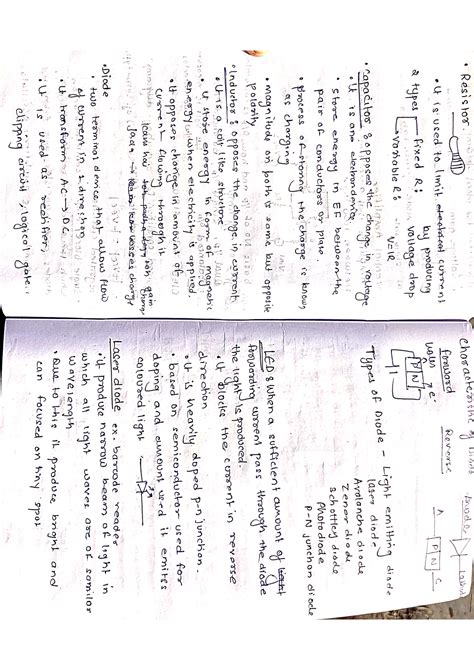 • Resistor
• It is used to limit current
by producing
voltage drop
V=IR
2 types
fixed R:
Variable R:
• Capacitor: opposes the change in voltage
• It is
• store energy in EF between the
pair of conductors or plate.
• process of storing the charge is known
as charging
• magnitude on both is same but opposite
polarity
• Inductor: opposes the change in current
• It is a coil like structure
• It store energy in form of magnetic
energy when electricity is applied.
• It opposes change in amount of
current flowing through it
• Diode
• two terminal device that allow flow
of current in 1 direction
• It transform AC → DC
• It is used as rectifier,
clipping circuit, logical gate.
Characteristic of
Forward
Reverse
P N
P N C
Types of Diode - Light emitting diode
laser diode
Avalanche diode
Zener diode
schottky diode
Photodiode
P-N junction diode
LED: When a sufficient amount of
forwarding current pass through the diode
the light is produced.
• It blocks the current in reverse
direction
• It is heavily doped p-n junction.
• based on semiconductor used for
doping and amount used it emits
coloured light
Laser diode ex. barcode reader
• It produce narrow beam of light in
which all light waves are of similar
wavelength
• Due to this it produce bright and
can focused on tiny spot